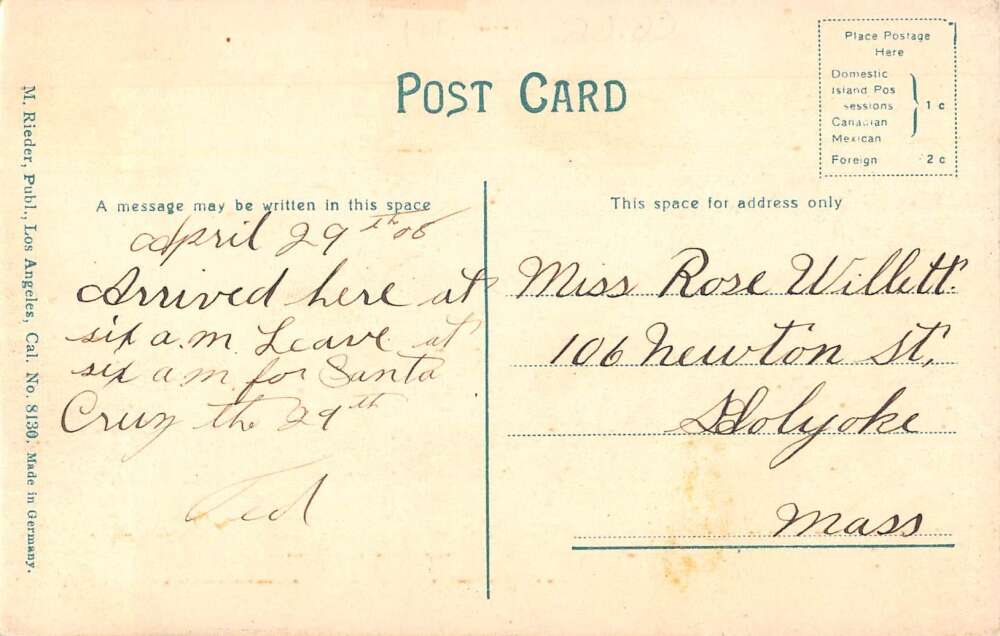 Place Postage
Here
Domestic
Island Pos
sessions
Canadian
Mexican
1 c
Foreign 2 c
POST CARD
M. Rieder, Publ., Los Angeles, Cal. No. 8130. Made in Germany.
A message may be written in this space
April 29th 08
Arrived here at
six a.m. Leave at
six a m for Santa
Cruz the 29th
Ted
This space for address only
Miss Rose Willett.
106 Newton St,
Holyoke
Mass